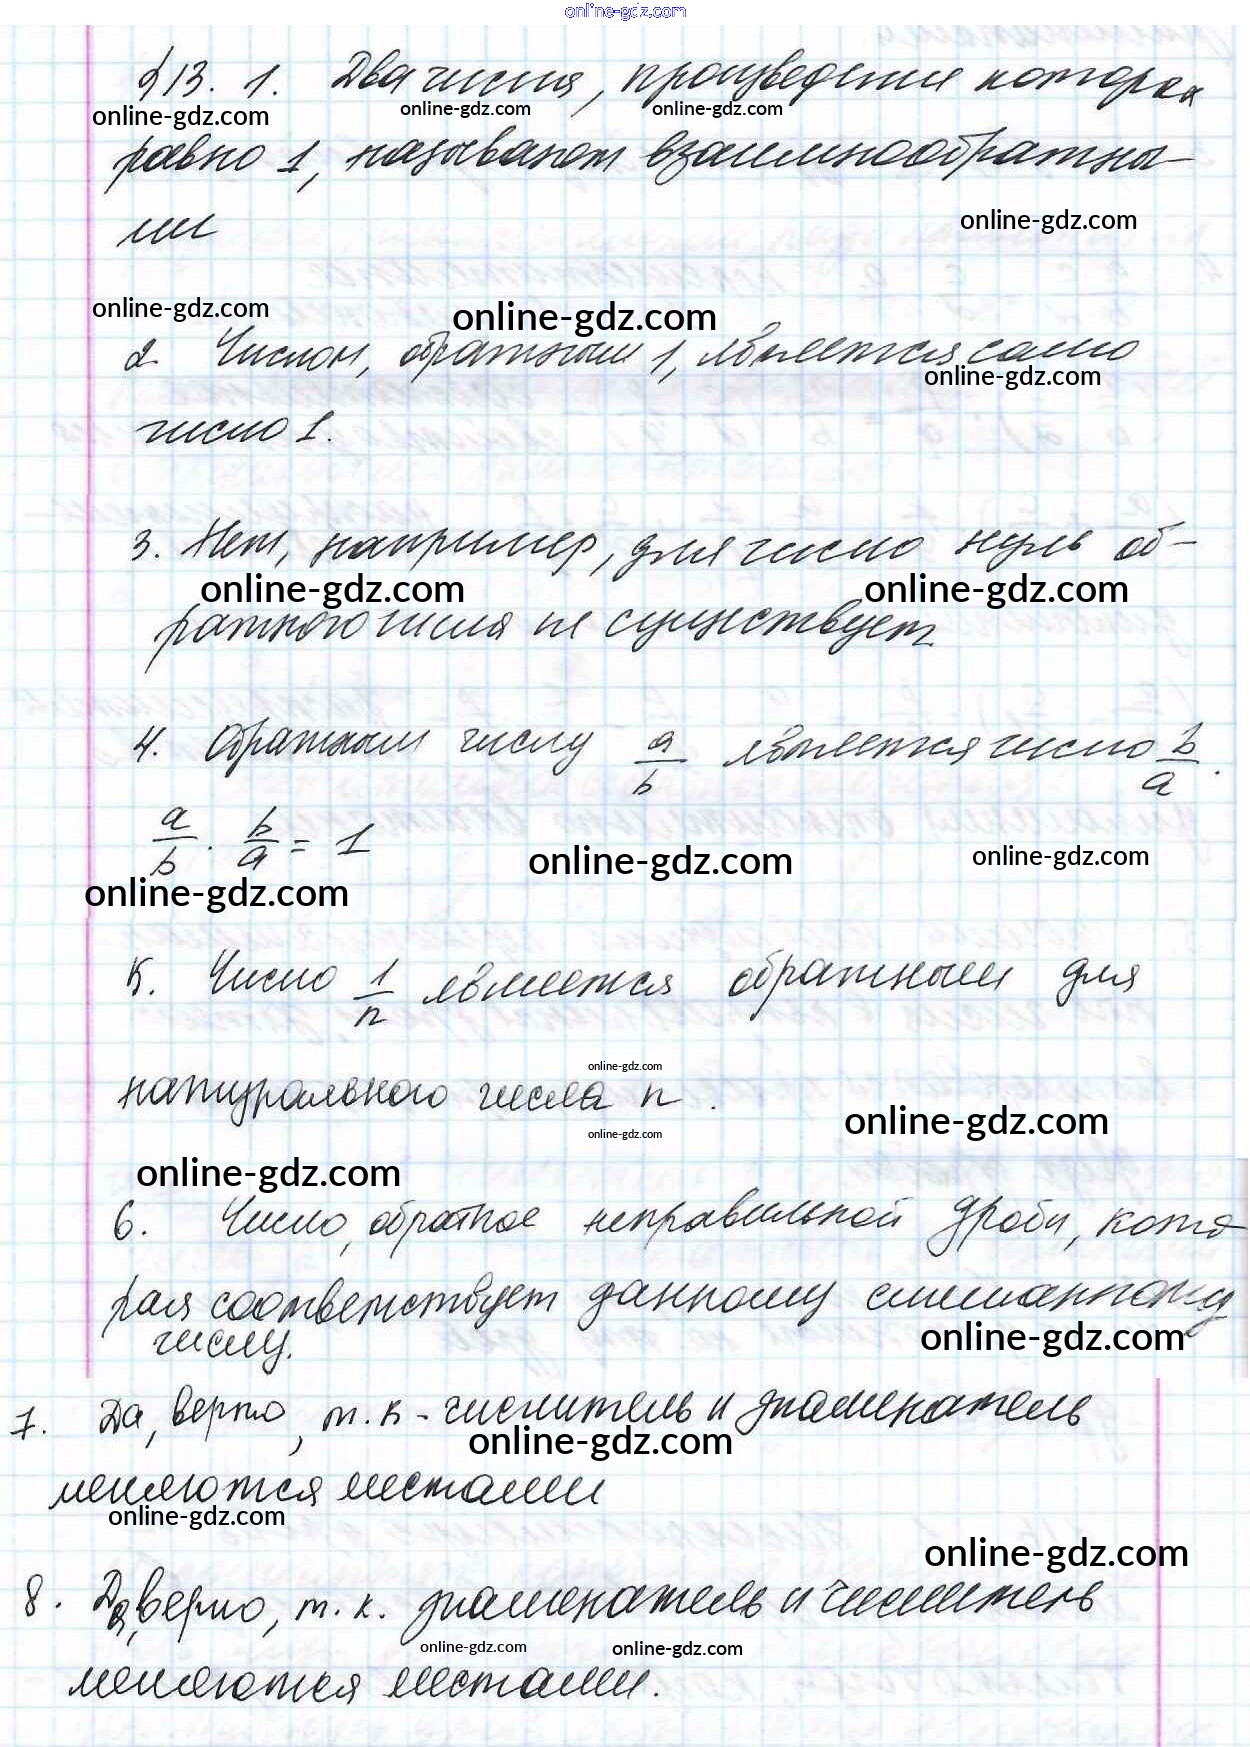 online-gdz.com
§13. 1. Два числа, произведение которых
online-gdz.com
online-gdz.com
online-gdz.com
равно 1, называют взаимнообратны-
ми
online-gdz.com
online-gdz.com
online-gdz.com
2. Числом, обратным 1, является само
online-gdz.com
число 1.
3. Нет, например, для число нуль об-
online-gdz.com
online-gdz.com
ратного числа не существует
4. Обратным числу a/b является число b/a.
a/b · b/a = 1
online-gdz.com
online-gdz.com
online-gdz.com
5. Число 1/n является обратным для
online-gdz.com
натурального числа n.
online-gdz.com
online-gdz.com
online-gdz.com
6. Число, обратное неправильной дроби, кото
рая соответствует данному смешанному
числу.
online-gdz.com
7. Да, верно, т.к - числитель и знаменатель
online-gdz.com
меняются местами
online-gdz.com
online-gdz.com
8. Да, верно, т.к. знаменатель и числитель
online-gdz.com
online-gdz.com
меняются местами.